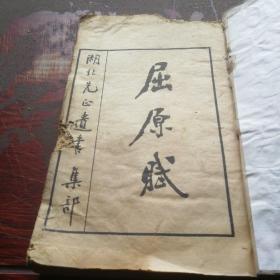 屈原賦
湖北先正遺書 集部